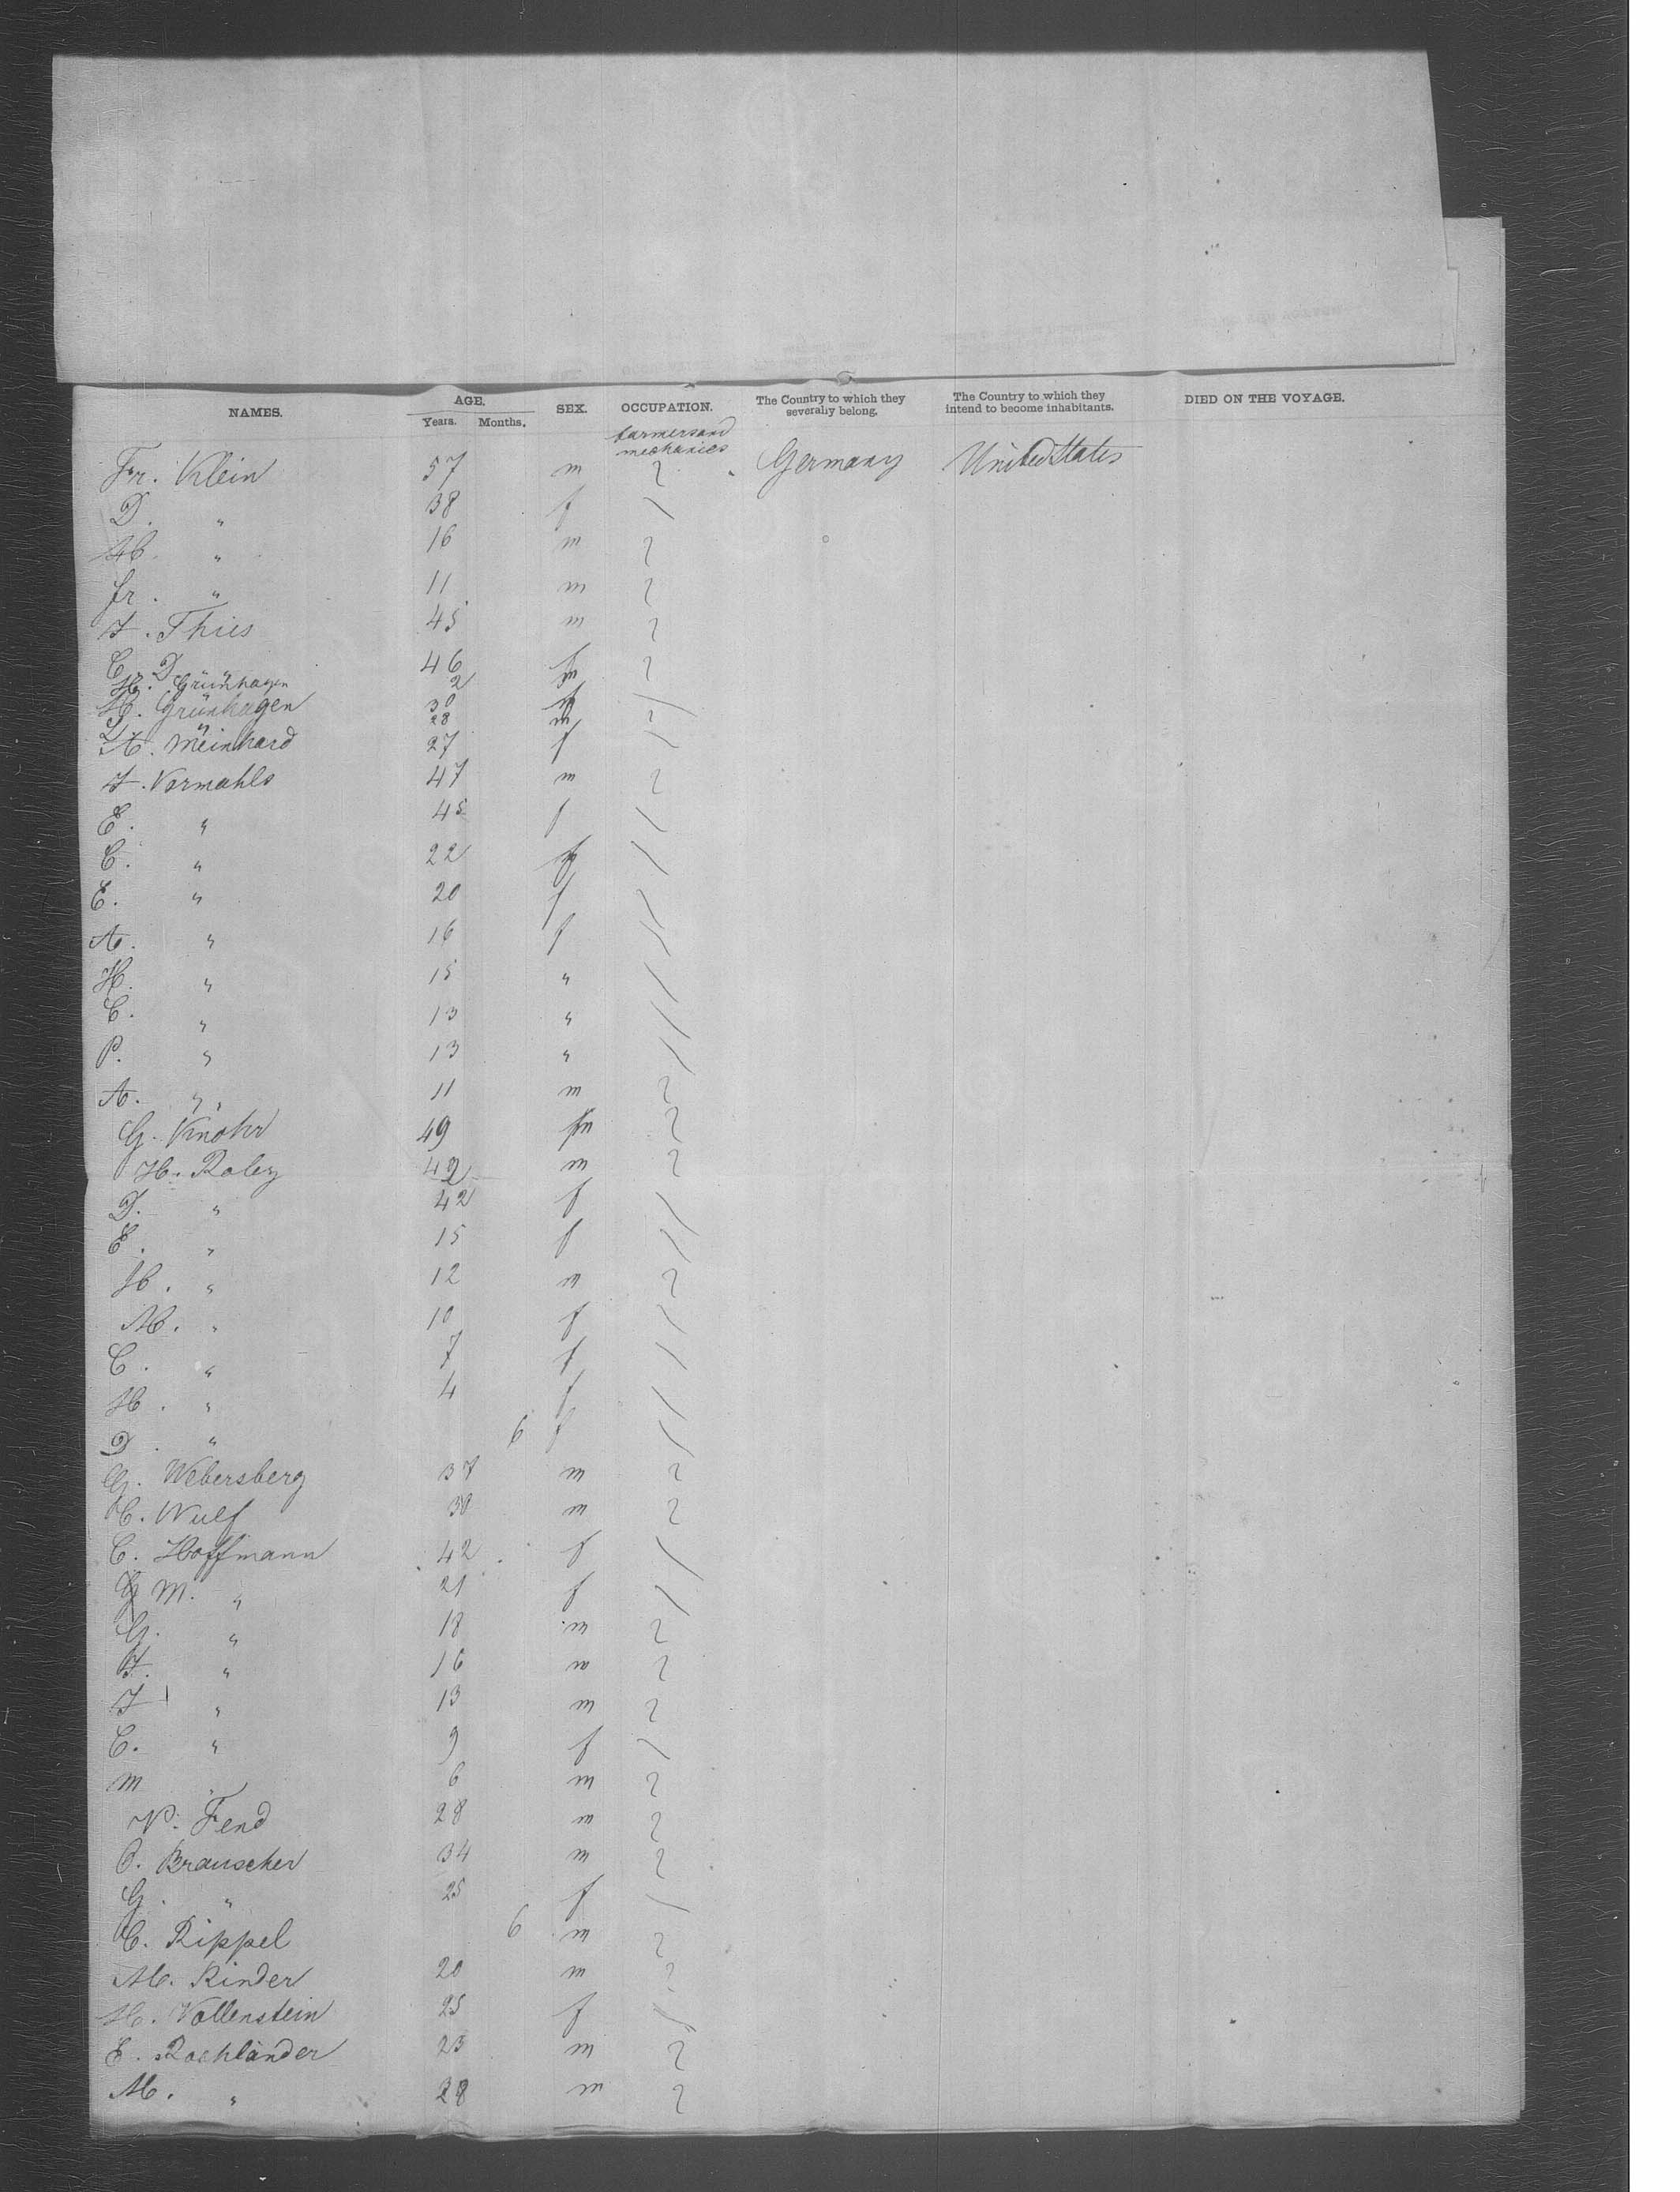 NAMES. AGE. SEX. OCCUPATION. The Country to which they severally belong. The Country to which they intend to become inhabitants. DIED ON THE VOYAGE.
Years. Months.
farmers and mechanics
Fr. Klein 57 m Germany United States
D. " 38 f
H. " 16 m
fr. " 11 m
J. Thies 45 m
C. D 46
H. Grünhagen 2
H. Grünhagen 30
" 28 m
A. Meinhard 27 f
J. Vormahls 47 m
E. " 45 f
C. " 22 f
E. " 20 f
A. " 16 f
H. " 15 "
C. " 13 "
P. " 13 "
A. " 11 m
G. Knohr 49 m
H. Roley 42 m
D. " 42 f
E. " 15 f
H. " 12 m
M. " 10 f
C. " 7 f
H. " 4 f
D. " 6 f
G. Webersberg 37 m
C. Wulf 30 m
C. Hoffmann 42 f
M. " 21 f
G. " 18 m
F. " 16 m
J " 13 m
C. " 9 f
m 6 m
N. Fend 28 m
O. Brauscher 34 m
G. " 25 f
C. Rippel 6 m
M. Rinder 20 m
H. Vollenstein 25 f
E. Rochländer 23 m
M. " 28 m